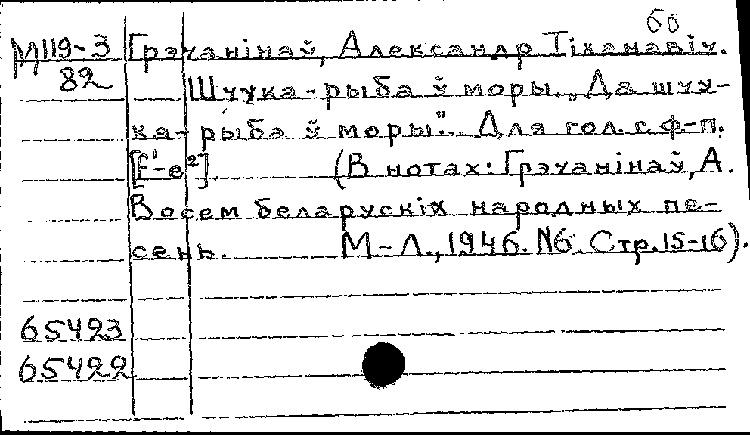 60
М119-3 Грэчанінаў, Александр Тіханавіч.
82 Шчука-рыба ў моры. „Да шчу-
ка-рыба ў моры". Для гол. с ф-п.
[f¹-e²]. (В нотах: Грэчанінаў, А.
Восем беларускіх народных пе-
сень. М-Л., 1946. N6. Стр. 15-16).
65423
65422